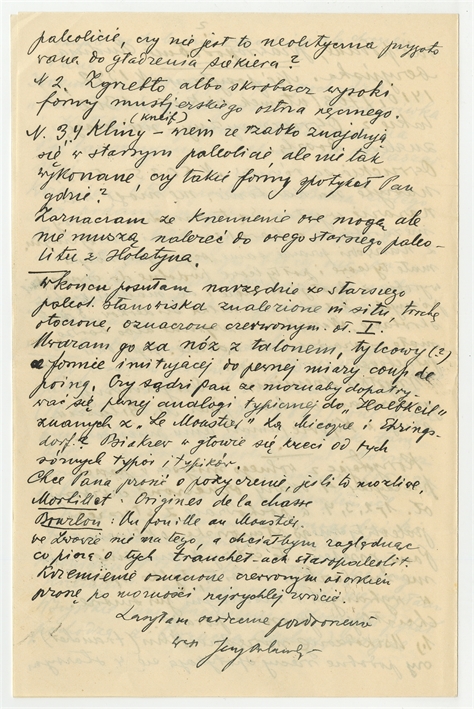 paleolicie, czy nie jest to neolityczna przygoto
wana do gładzenia siekiera?
N 2 Zgrzebło albo skrobacz wysoki
formy mustjerskiego ostrza ręcznego.
(Kneif)
N. 3, 4 Kliny – wiem że rzadko znajdują
się w starszym paleolicie, ale nie tak
wykonane, czy takie formy spotykał Pan
gdzie?
Zaznaczam że krzemienie owe mogą ale
nie muszą należeć do owego starszego paleo-
litu z Hołatyna.
W końcu posyłam narzędzie ze starszego
paleol. stanowiska znalezione in situ, trochę
otoczone, oznaczone czerwonym ot. I.
Uważam go za nóż z talonem, tylcowy (?)
o formie imitującej do pewnej miary coup de
poing. Czy sądzi Pan że możnaby dopatry-
wać się pewnej analogi typicznej do „Halbkeil"
znanych z „Le Moustier" La Micoque i Ehrings-
dorf? Psiakrew w głowie się kręci od tych
różnych typów i typików.
Chcę Pana prosić o pożyczenie, jeśli to możliwe,
Mortillet: Origines de la chasse
Bourlon: Un fouille au Moustier.
we Lwowie nie ma tego, a chciałbym zaglądnąć
co piszą o tych tranchet-ach staropaleolit.
Krzemienie oznaczone czerwonym ołówkiem
proszę po możności najrychlej zwrócić.
Łączę serdeczne pozdrowienia